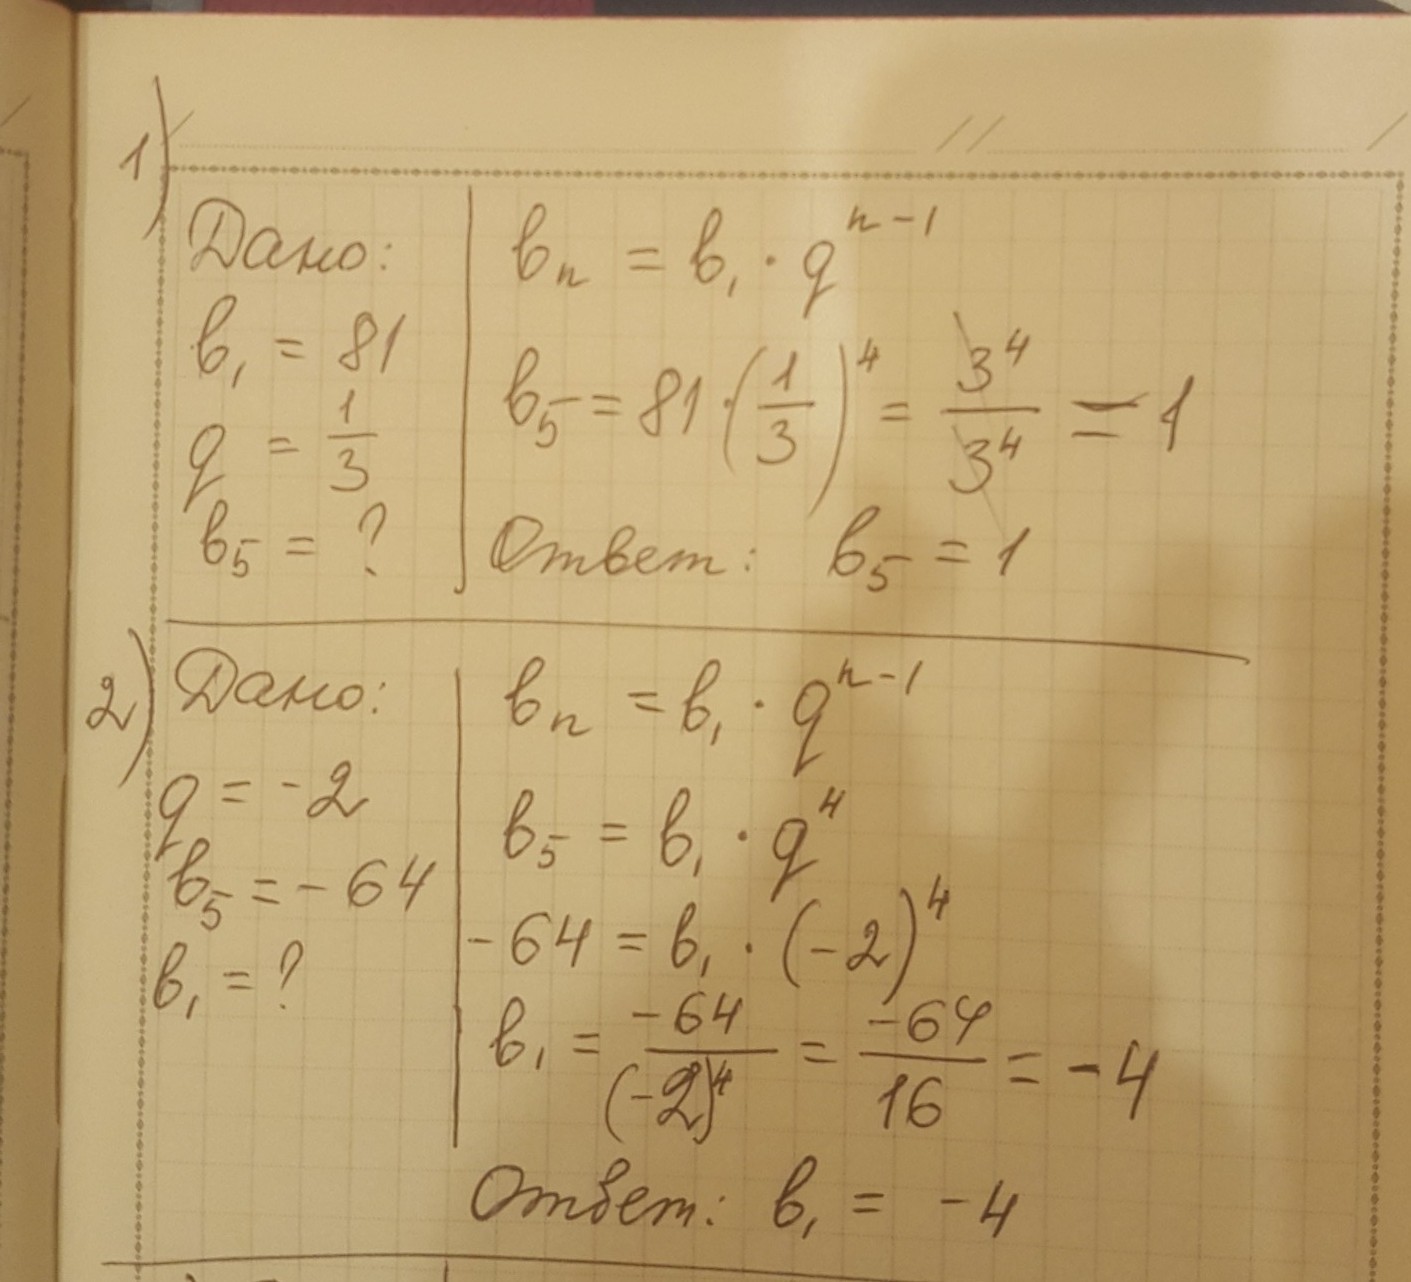 1)
Дано:
b₁ = 81
q = 1/3
b₅ = ?
bₙ = b₁ · qⁿ⁻¹
b₅ = 81 · (1/3)⁴ = 3⁴/3⁴ = 1
Ответ: b₅ = 1
2)
Дано:
q = -2
b₅ = -64
b₁ = ?
bₙ = b₁ · qⁿ⁻¹
b₅ = b₁ · q⁴
-64 = b₁ · (-2)⁴
b₁ = -64/(-2)⁴ = -64/16 = -4
Ответ: b₁ = -4